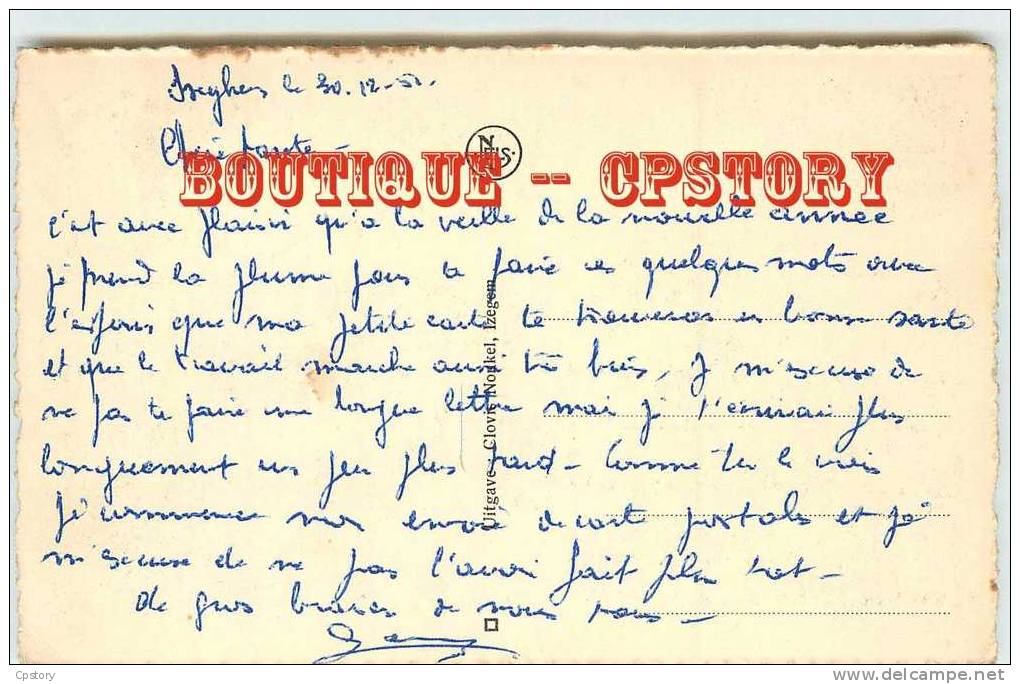 Iseghem le 30.12-51.
Chère tante -
N
BOUTIQUE -- CPSTORY
c'est avec plaisir qu'a la veille de la nouvelle année
je prend la plume pour te faire ces quelques mots avec
l'espoir que ma petite carte te trouveras en bonne santé
et que le travail marche aussi très bien, Je m'excuse de
ne pas te faire une longue lettre mai je t'écrirai plus
longuement un peu plus tard - Comme tu le vois
Je commence mon envoi de carte postale et je
m'excuse de ne pas l'avoir fait plus tot -
de gros baisers de nous tous -
Uitgave - Clovis Nonkel, Izegem
Cpstory
delcampe.net